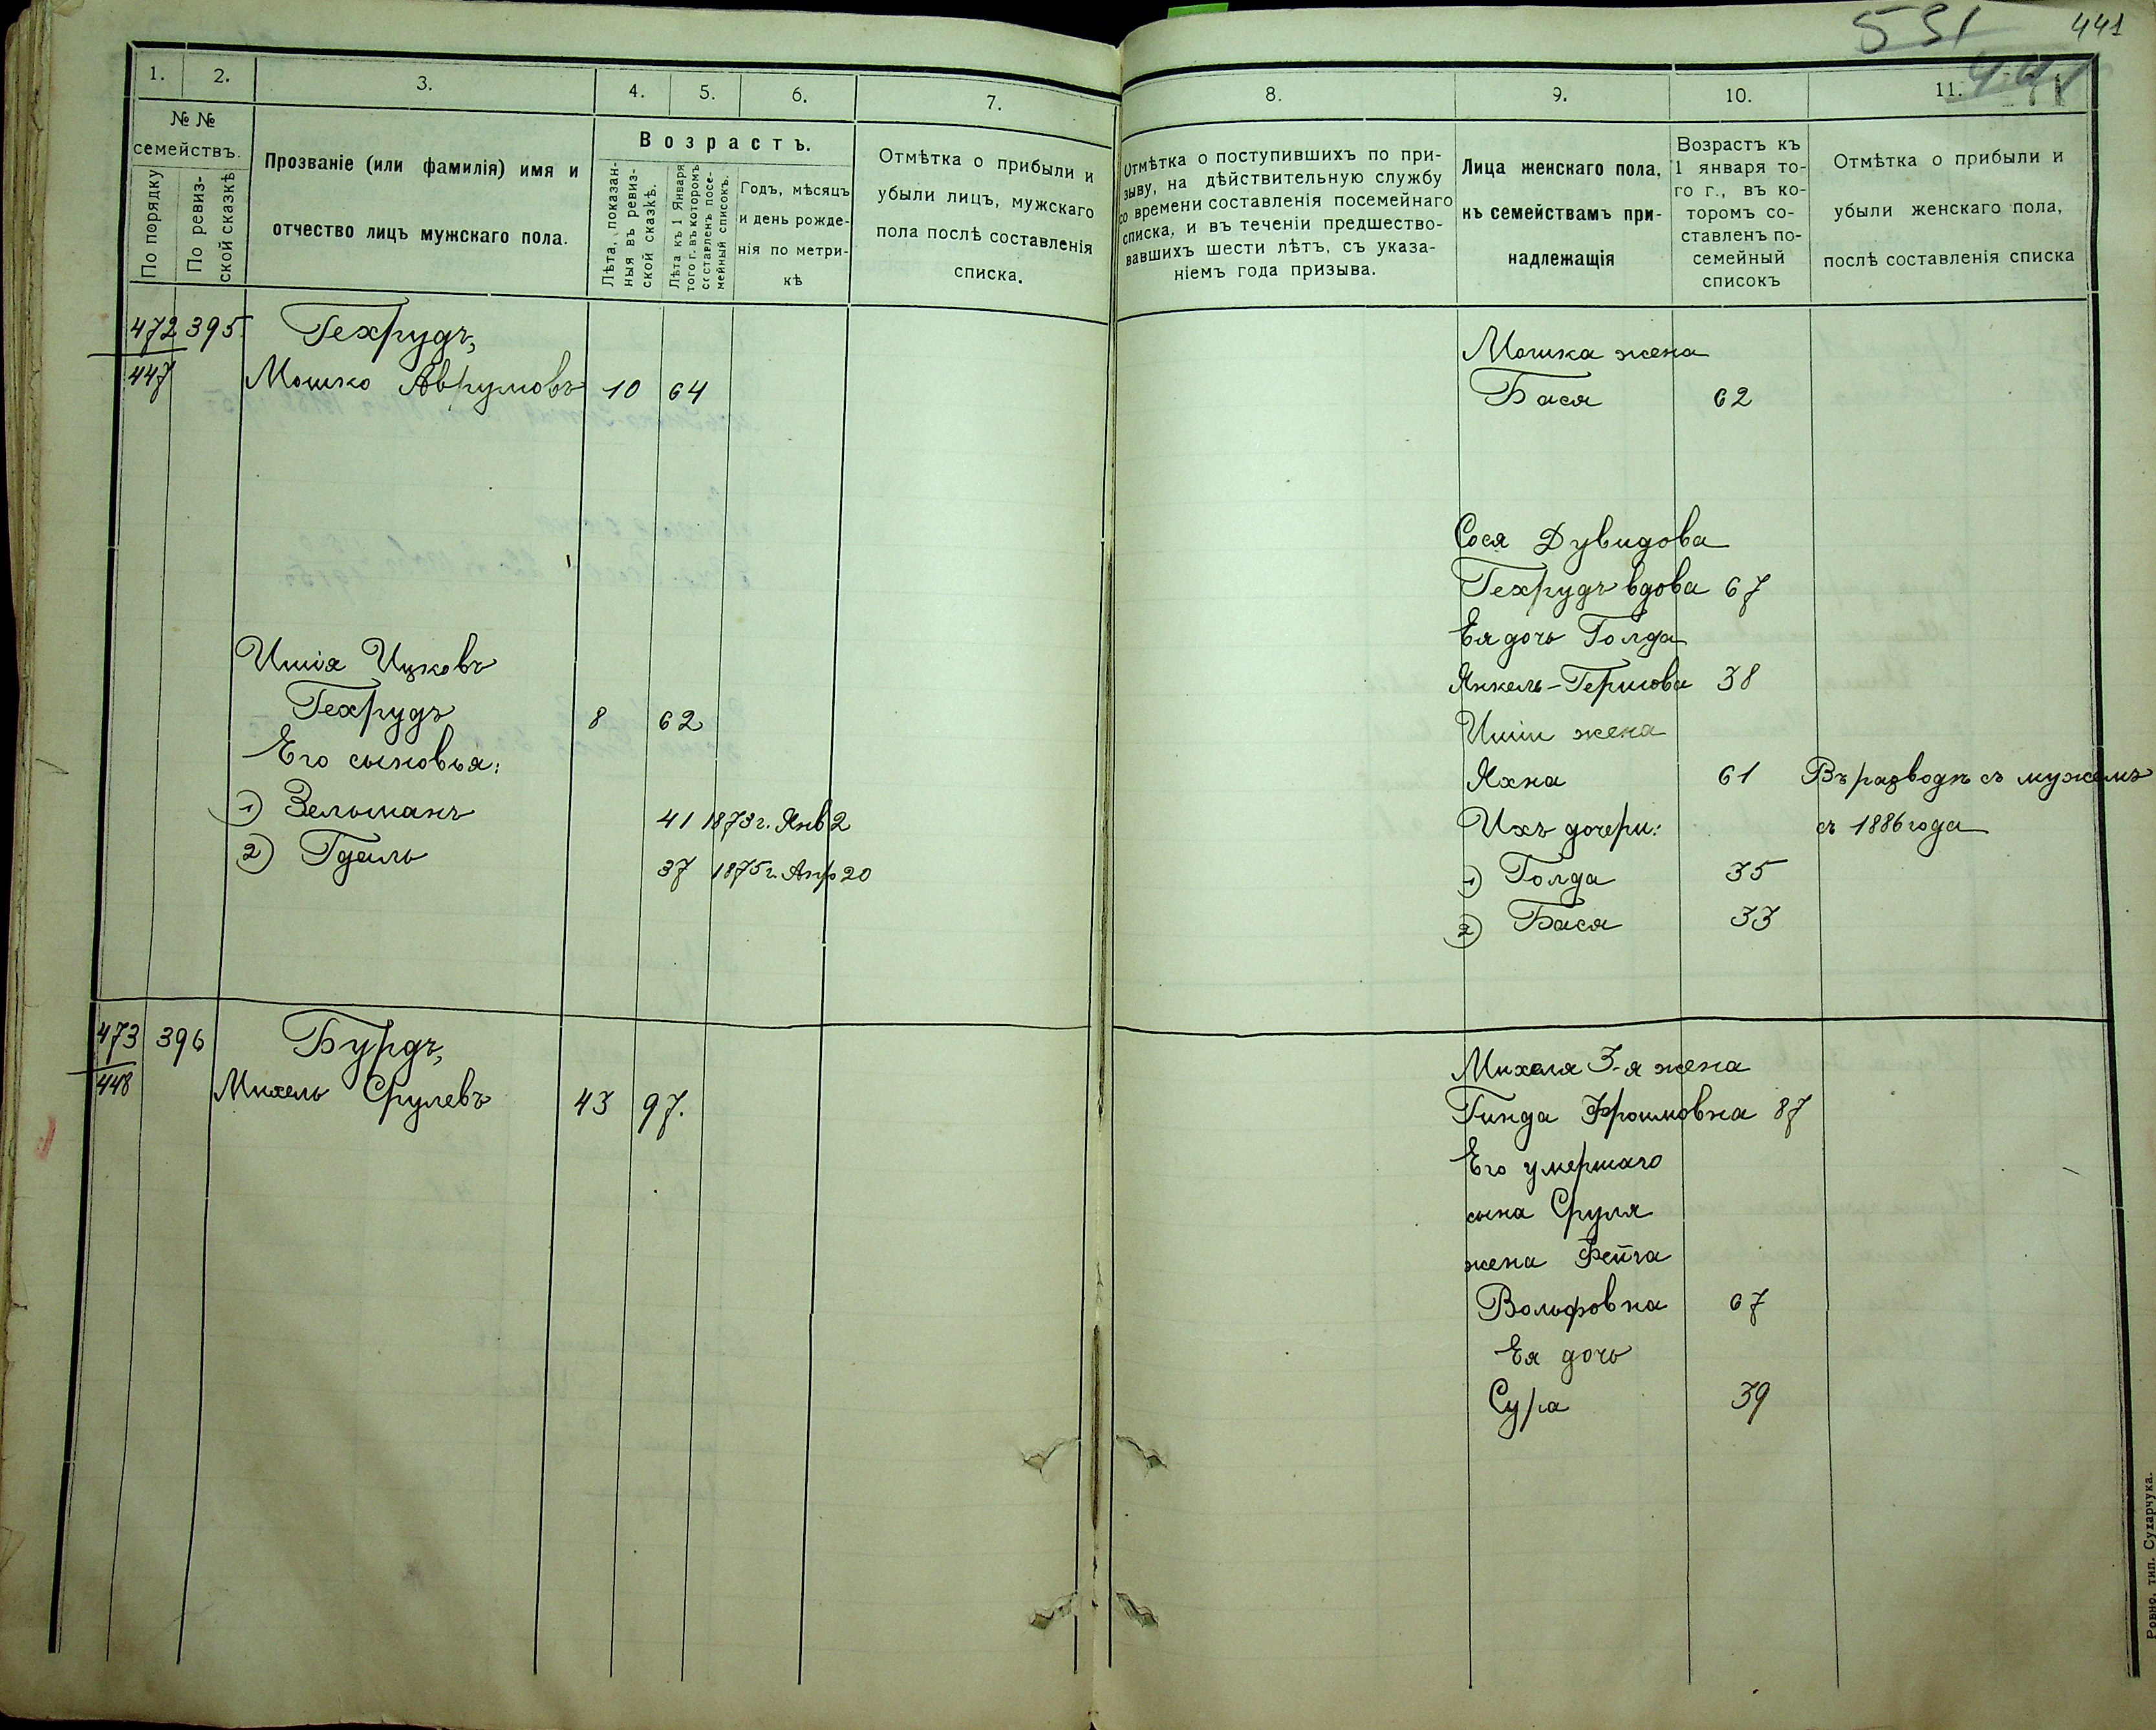 531
441
1. 2. 3. 4. 5. 6. 7.
№ №
семействъ.
По порядку
По ревиз-
ской сказкѣ
Прозваніе (или фамилія) имя и
отчество лицъ мужскаго пола.
Возрастъ.
Лѣта, показан-
ныя въ ревиз-
ской сказкѣ.
Лѣта къ 1 Января
того г. въ которомъ
составленъ посе-
мейный списокъ.
Годъ, мѣсяцъ
и день рожде-
нія по метри-
кѣ
Отмѣтка о прибыли и
убыли лицъ, мужскаго
пола послѣ составленія
списка.
472 395 Гехрудъ,
447 Мошко Аврумовъ 10 64
Ишія Ицковъ
Гехрудъ 8 62
Его сыновья:
1) Зельманъ 41 1873г. Янв 2
2) Гдаль 37 1875г. Апр 20
473 396 Бурдъ,
448 Михель Срулевъ 43 97.
8. 9. 10. 11.
Отмѣтка о поступившихъ по при-
зыву, на дѣйствительную службу
со времени составленія посемейнаго
списка, и въ теченіи предшество-
вавшихъ шести лѣтъ, съ указа-
ніемъ года призыва.
Лица женскаго пола,
къ семействамъ при-
надлежащія
Возрастъ къ
1 января то-
го г., въ ко-
торомъ со-
ставленъ по-
семейный
списокъ
Отмѣтка о прибыли и
убыли женскаго пола,
послѣ составленія списка
Мошка жена
Бася 62
Сося Дувидова
Гехрудъ вдова 67
Ея дочь Голда
Янкель-Гершова 38
Ишіи жена
Яхна 61 Въ разводѣ съ мужемъ
Ихъ дочери: съ 1886 года
1) Голда 35
2) Бася 33
Михеля 3-я жена
Гинда Фроимовна 87
Его умершаго
сына Сруля
жена Фейга
Вольфовна 67
Ея дочь
Сура 39
Ровно, тип. Сухарчука.